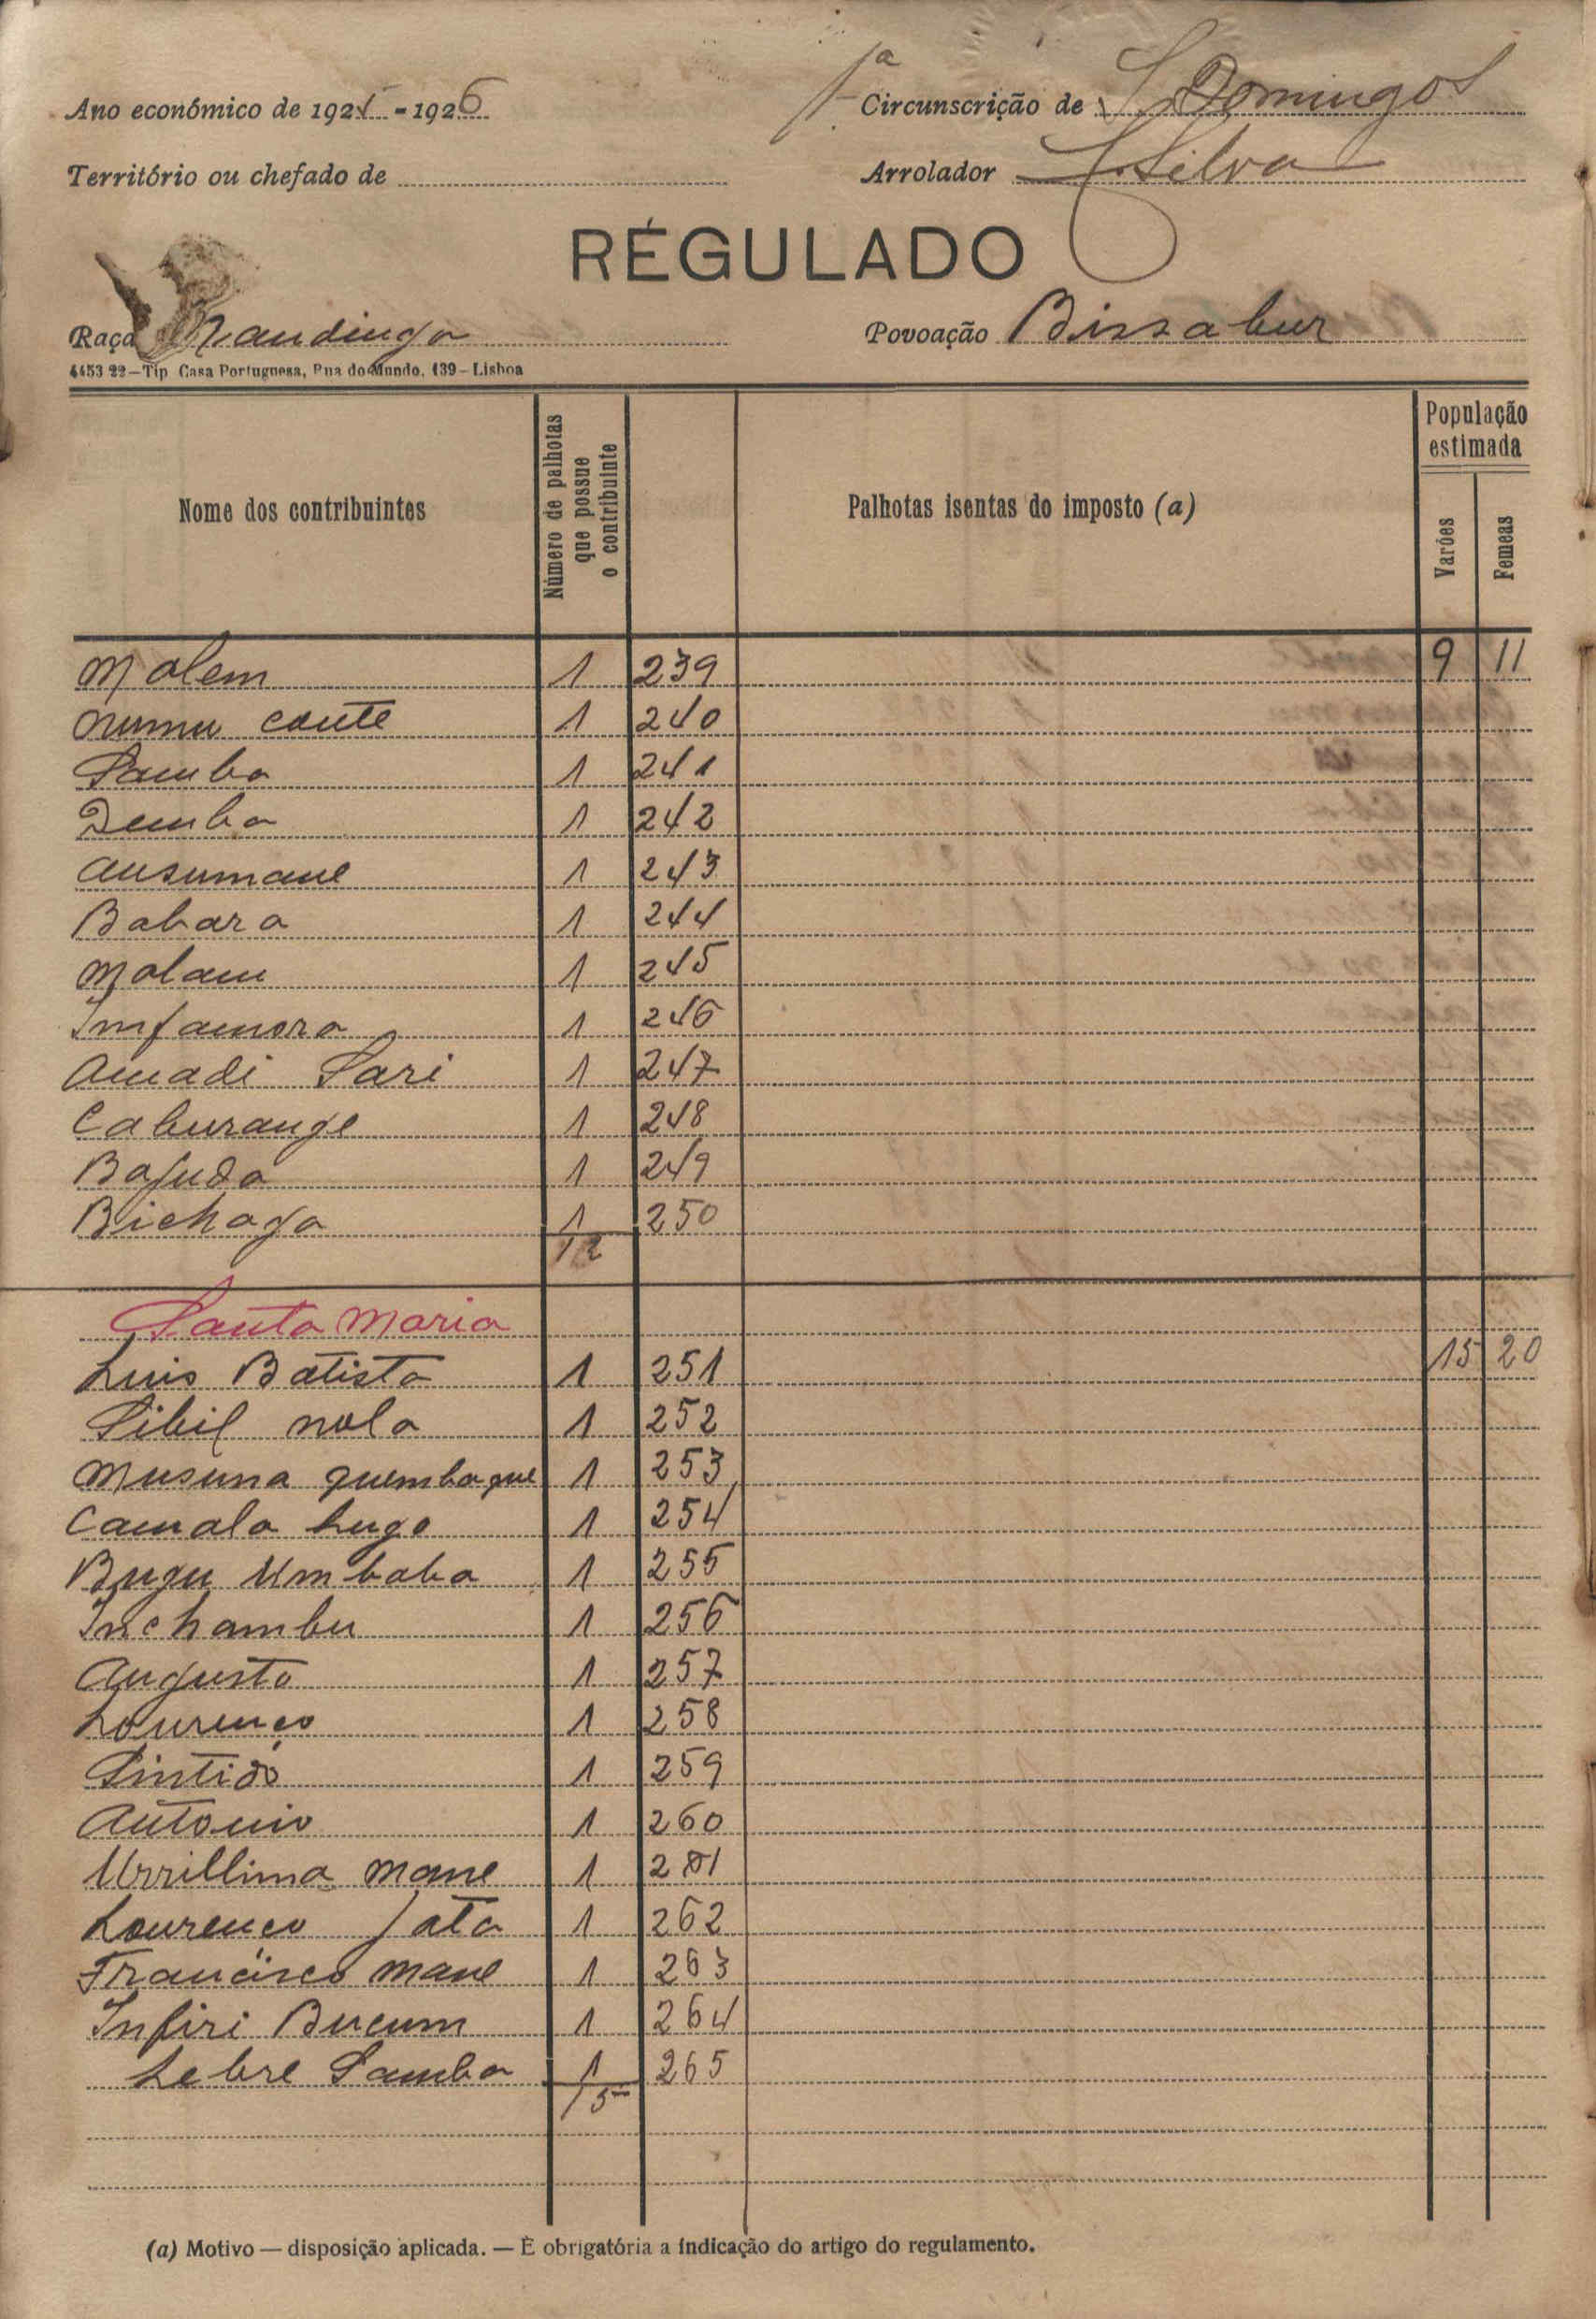 1ª Circunscrição de S Domingos
Ano económico de 1925 - 1926
Território ou chefado de
Arrolador Silva
REGULADO
Raça Mandinga
Povoação Bissabur
4453 22 — Tip. Casa Portuguesa, Rua do Mundo, 139 — Lisboa
Nome dos contribuintes
Número de palhotas que possue o contribuinte
Palhotas isentas do imposto (a)
População estimada
Varões
Femeas
Malem 1 239 9 11
numu conte 1 240
Samba 1 241
Demba 1 242
Ansumane 1 243
Babara 1 244
Malam 1 245
Infamora 1 246
Amadi Sari 1 247
Caburange 1 248
Bajuda 1 249
Bichaga 1 250
12
Santa Maria
Luis Batista 1 251 15 20
Sibil nola 1 252
Musuna quembaque 1 253
Camala Lugo 1 254
Bugu Umbaba 1 255
Inchambu 1 256
Augusto 1 257
Lourenço 1 258
Sintido 1 259
Antonio 1 260
Urrillima mane 1 261
Lourenço Jata 1 262
Francisco mane 1 263
Infiri Bucum 1 264
Lebre Samba 1 265
15
(a) Motivo — disposição aplicada. — É obrigatória a indicação do artigo do regulamento.